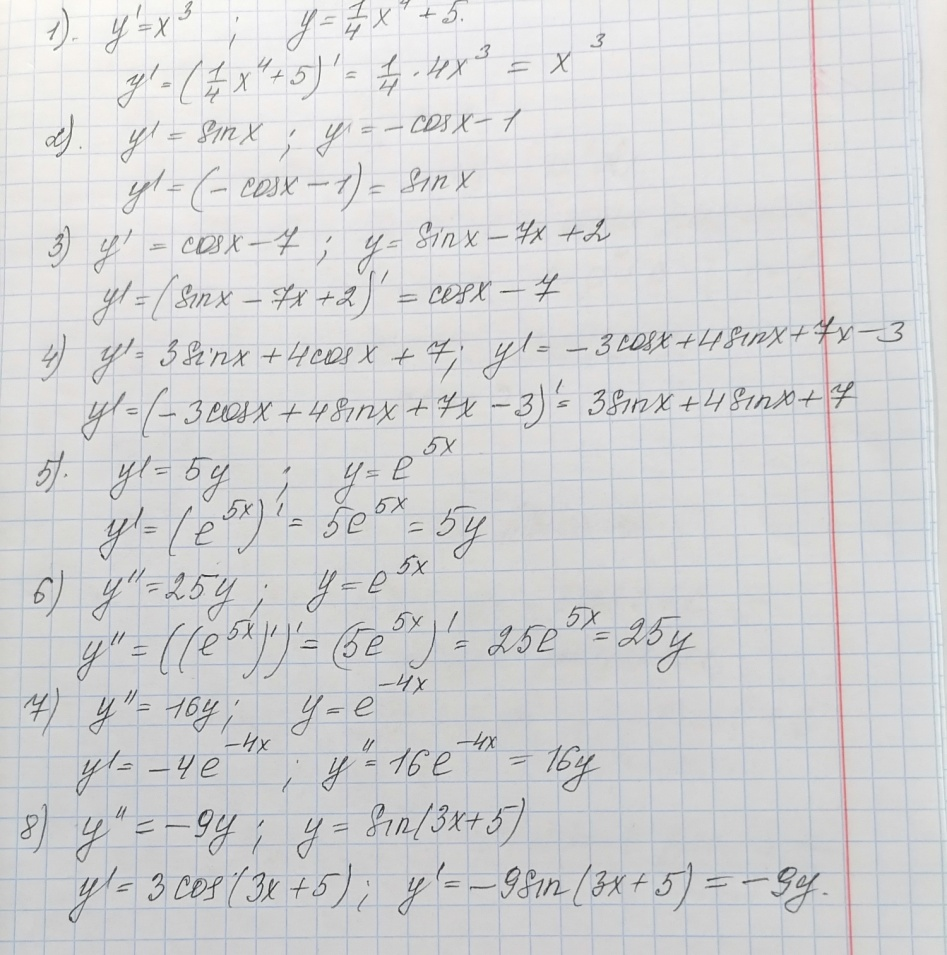 1). y' = x³ ; y = 1/4 x⁴ + 5.
y' = (1/4 x⁴ + 5)' = 1/4 · 4x³ = x³
2). y' = sinx ; y' = -cosx - 1
y' = (-cosx - 1) = sinx
3) y' = cosx - 7 ; y = sinx - 7x + 2
y' = (sinx - 7x + 2)' = cosx - 7
4) y' = 3sinx + 4cosx + 7; y' = -3cosx + 4sinx + 7x - 3
y' = (-3cosx + 4sinx + 7x - 3)' = 3sinx + 4sinx + 7
5). y' = 5y ; y = e^5x
y' = (e^5x)' = 5e^5x = 5y
6) y'' = 25y ; y = e^5x
y'' = ((e^5x)')' = (5e^5x)' = 25e^5x = 25y
7) y'' = 16y ; y = e^-4x
y' = -4e^-4x ; y'' = 16e^-4x = 16y
8) y'' = -9y ; y = sin(3x+5)
y' = 3cos(3x+5) ; y' = -9sin(3x+5) = -9y.